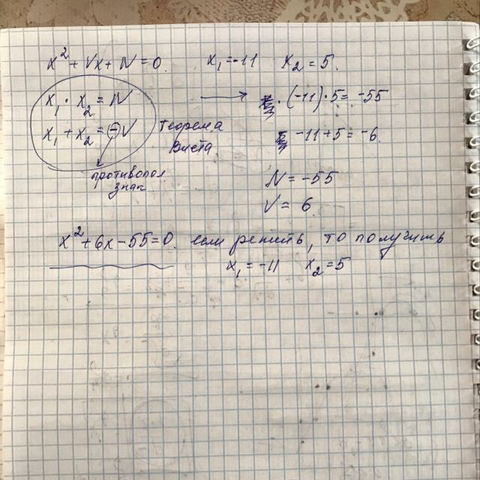 x² + Vx + N = 0. x₁ = -11 x₂ = 5.
x₁ · x₂ = N → (-11) · 5 = -55
x₁ + x₂ = -V Теорема Виета -11 + 5 = -6
противопол знак
N = -55
V = 6.
x² + 6x - 55 = 0. если решить, то получить
x₁ = -11 x₂ = 5